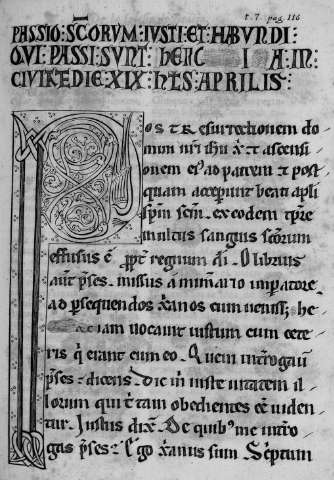 t. 7. pag 116
PASSIO : SCORVM : IVSTI : ET : HABVNDI :
QVI : PASSI : SVNT : IN
CIVITATE DIE XIX : APRILIS :
Post resurrectionem do
mini nri ihu xpi et ascensi
onem eius ad patrem et post
quam acceperunt beati apli
spm scm. ex eodem tpre
multus sanguis scorum
effusus e. ppt regnum di. Olibrius
aut pses. missus a imperatore
ad persequendos xpanos cum uenisset
uocauit iustum cum cete
ris q erant cum eo. Quem introgauit
pses. dicens. Dic m iuste
lorum qui tam obedientes ee uiden
tur. Iustus dix. De quib me intro
gas pses. Ego xpanus sum